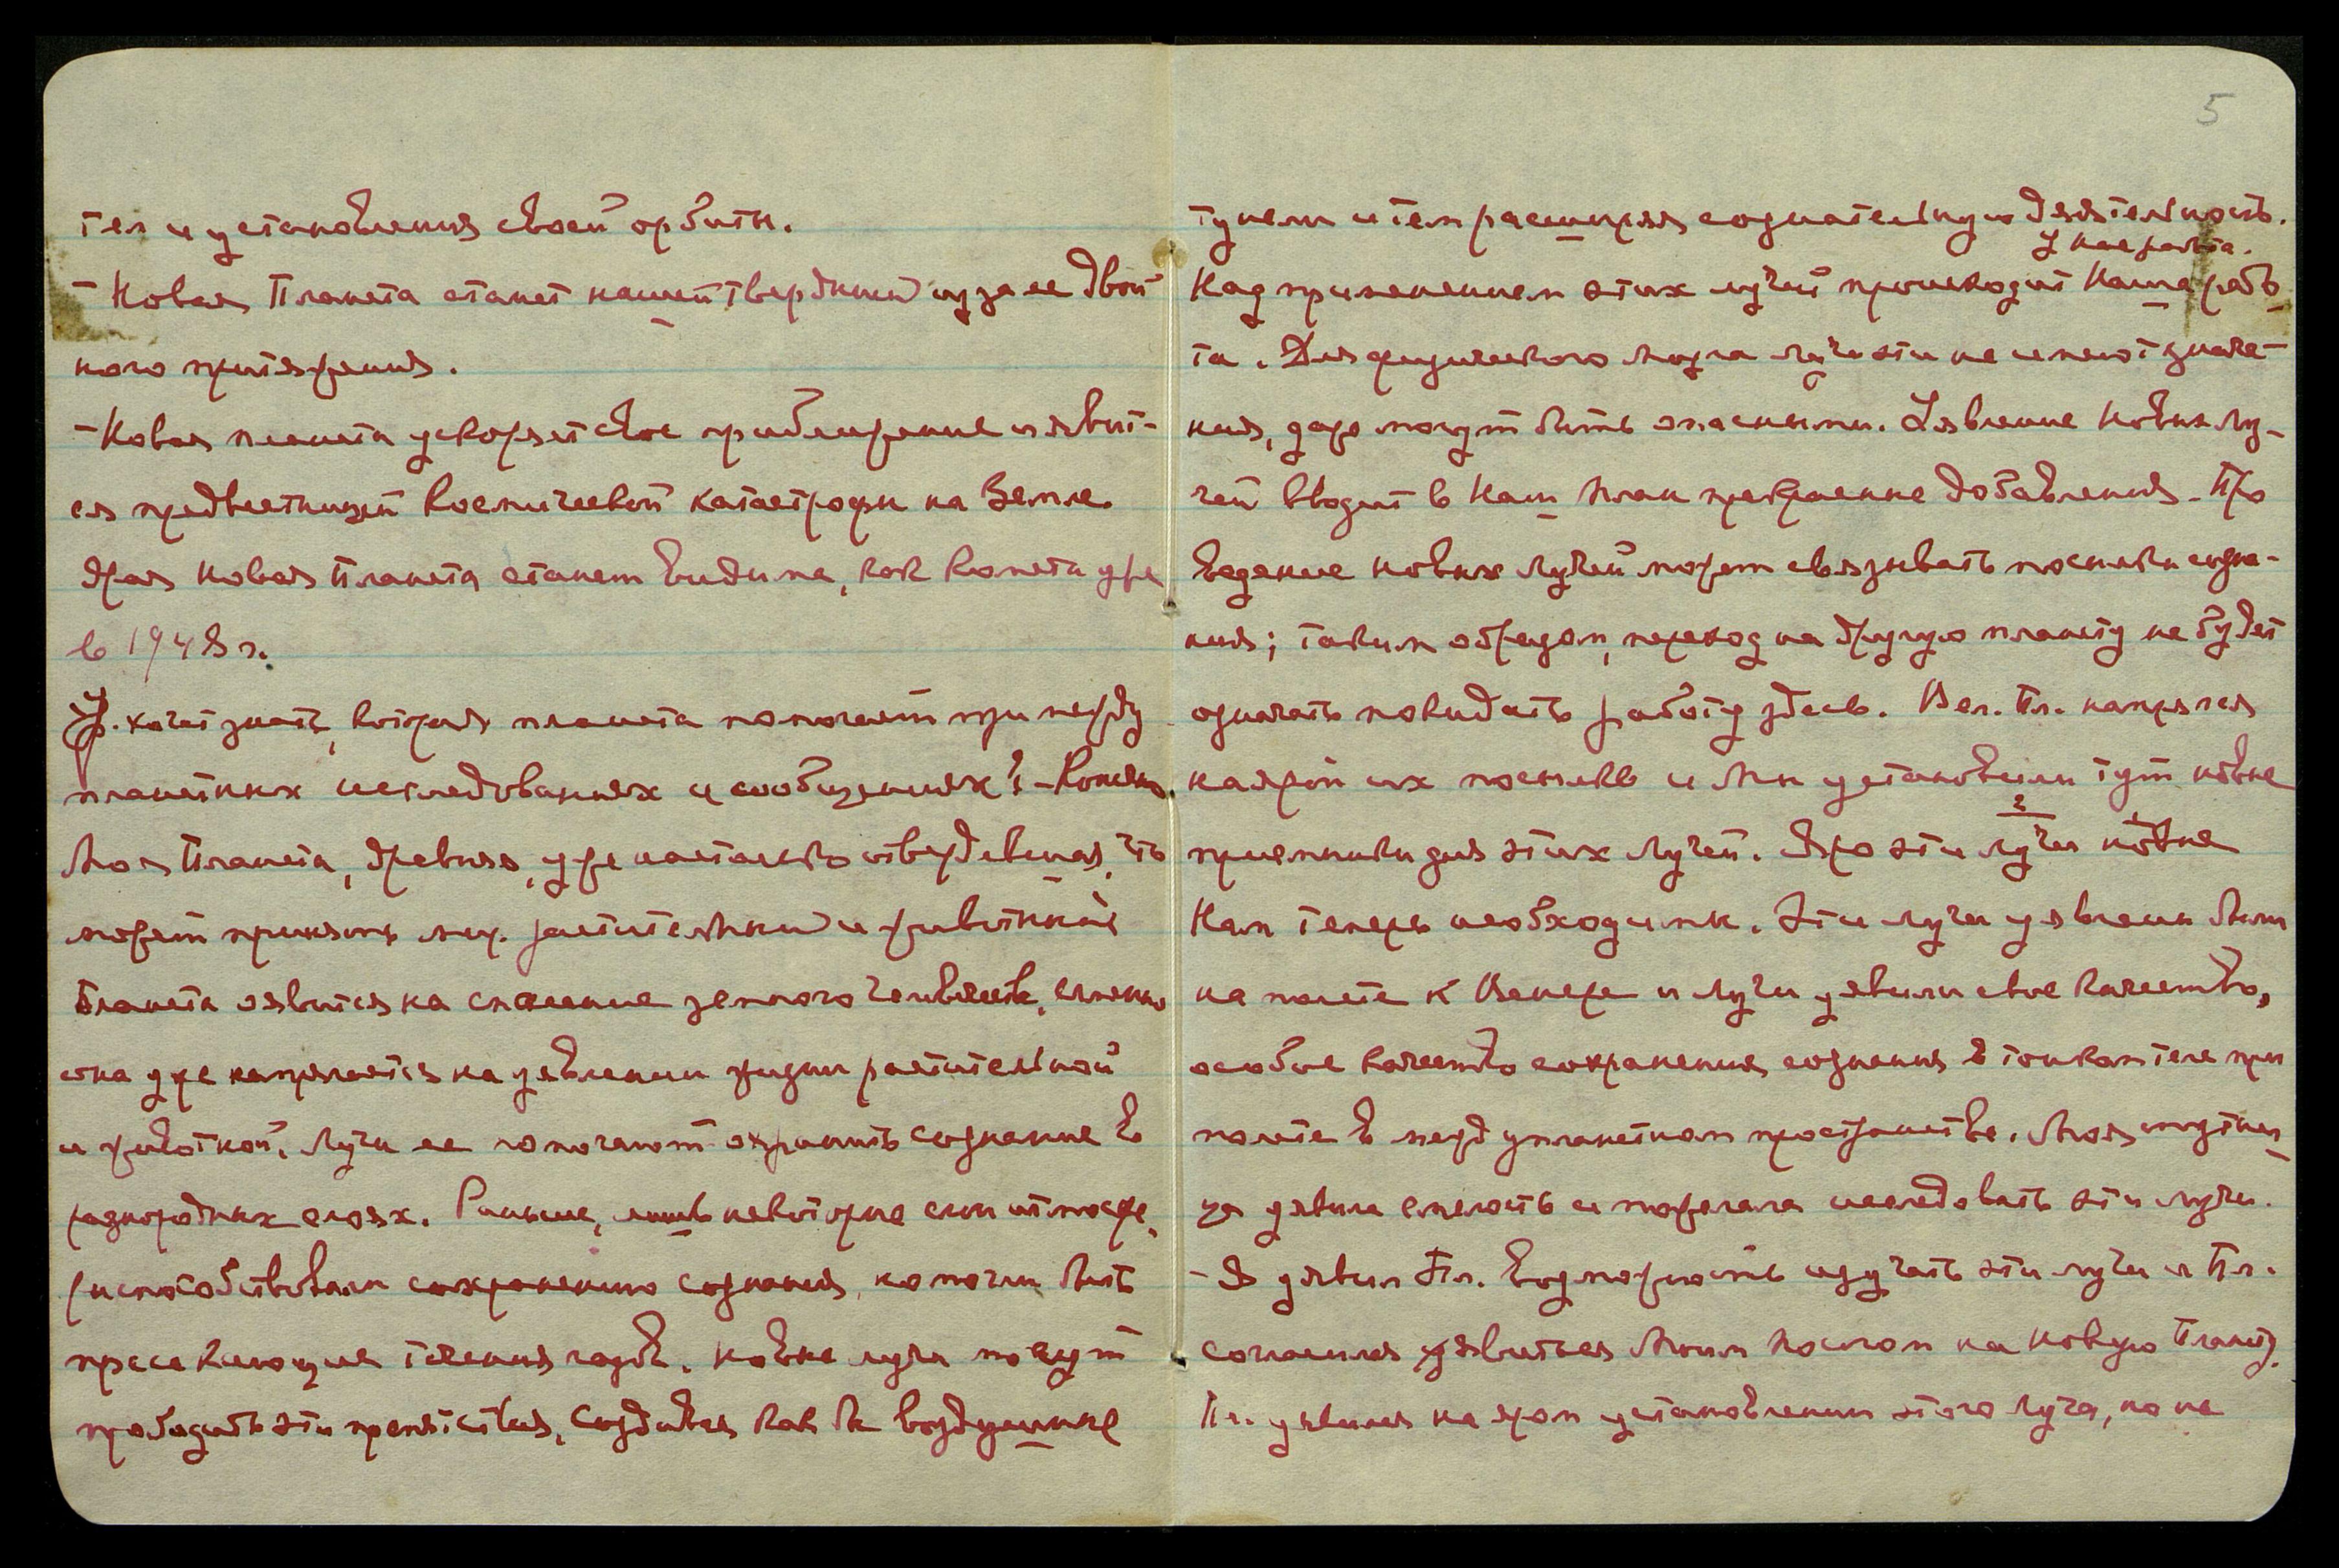 тел и установления своей орбиты.
– Новая Планета станет нашей твердыней из за ее двой
ного притяжения.
– Новая планета ускоряет свое приближение и явит-
ся предвестницей Космической катастрофы на Земле.
Новая Планета станет видима, как комета уже
в 1948 г.
хочет знать, которая планета помогает при между
планетных исследованиях и сообщениях? – Конечно,
Моя Планета, древняя, уже настолько отвердевшая, что
может принять мир растительный и животный
Планета явится на спасение земного человечества,
она уже напрягается на явлении жизни растительной
и животной. Лучи ее помогают охранить сознание в
разнородных слоях. Раньше, лишь некоторые слои атмосфе
ры способствовали сохранению сознания, но могли быть
пресекающие течения газов. Новые лучи могут
прободать эти препятствия, создавая как бы воздушные
5
тунели и тем расширяя сознательную деятельность.
У нас работа.
Над применением этих лучей происходит Наша рабо
та. Для физического мозга лучи эти не имеют значе-
ния, даже могут быть опасными. Уявление новых лу-
чей вводит в Наш план прекрасные добавления. Про
ведение новых лучей может связывать посылки созна-
ния; таким образом, переход на другую планету не будет
означать покидать работу здесь. Вл. Пл. напрягся
на их посылке и Мы установили тут новые
приемники для этих лучей. Яро эти лучи новые
2
Нам теперь необходимы. Эти лучи уявлены были
на полете к Венере и лучи уявили свое качество,
особое качество сохранения сознания в тонком теле при
полете в междупланетном пространстве. Моя
уявила смелость и пожелала исследовать эти лучи.
– Я уявил Пл. возможность изучать эти лучи и Пл.
согласился уявиться Моим послом на Новую Планету.
Пл. уявился на яром установлении этого луча, но не